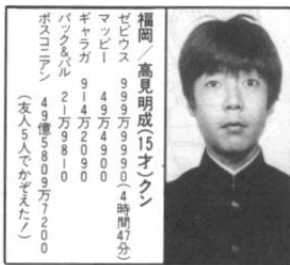 福岡／高見明成(15才)クン
ゼビウス 999万9990(4時間47分)
マッピー 49万4900
ギャラガ 914万2090
パック&パル 21万9810
ボスコニアン 49億5809万7200
(友人5人でかぞえた！)